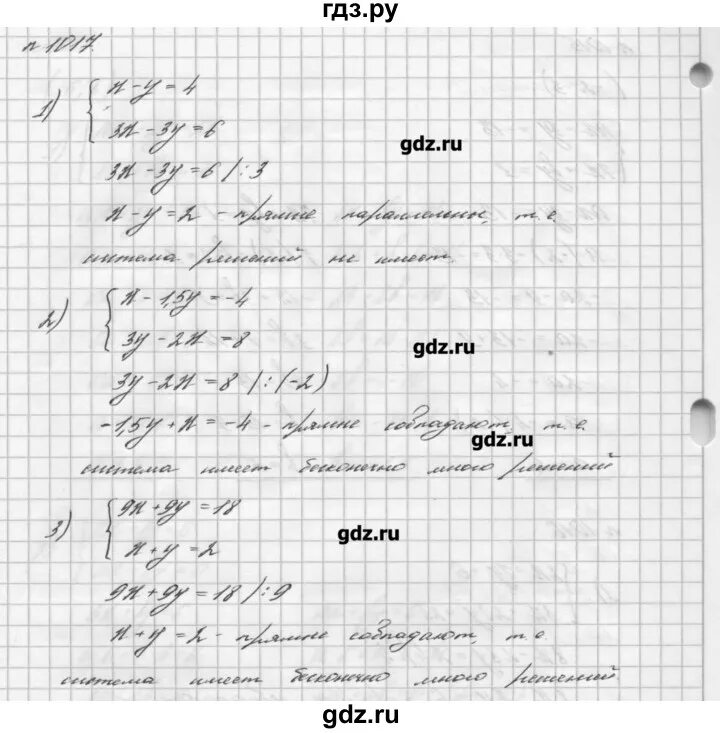 гдз.ру
п 1017.
1) { x - y = 4
3x - 3y = 6
gdz.ru
3x - 3y = 6 / : 3
x - y = 2 - прямые параллельны, т.е.
система решений не имеет.
2) { x - 1,5y = -4
3y - 2x = 8
gdz.ru
3y - 2x = 8 / : (-2)
-1,5y + x = -4 - прямые совпадают, т.е.
gdz.ru
система имеет бесконечно много решений
3) { 9x + 9y = 18
gdz.ru
x + y = 2
9x + 9y = 18 / : 9
x + y = 2 - прямые совпадают, т.е.
система имеет бесконечно много решений.
gdz.ru